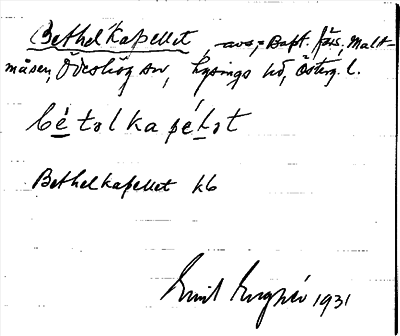 Bethelkapellet, avs. Bapt. förs., Malt-
måsen, Ödeshög sn, Lysings hd, Österg. l.
bétəlkapélət
Bethelkapellet kb
Emil 1931